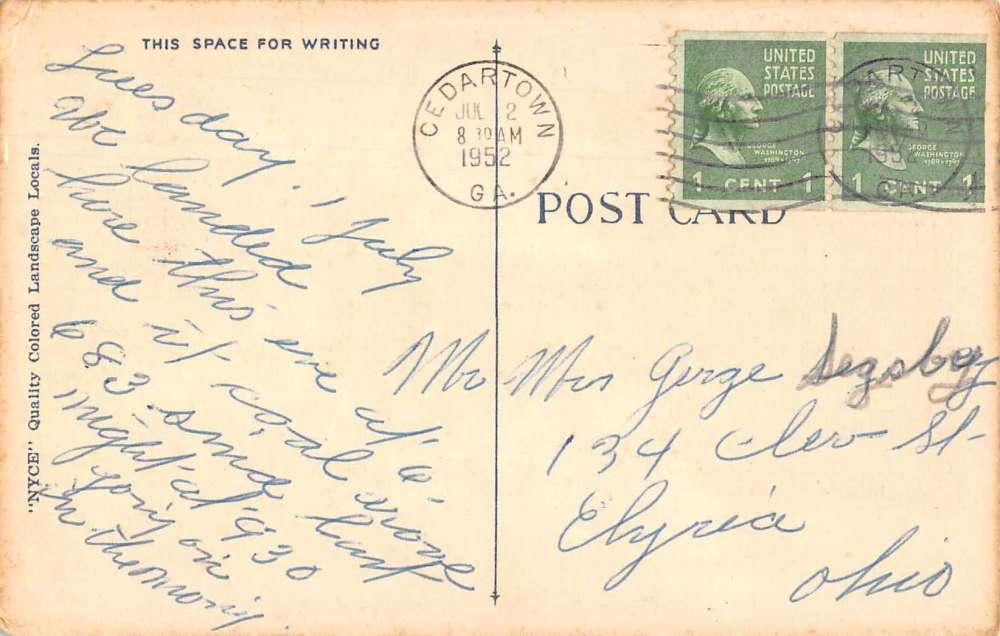 THIS SPACE FOR WRITING
Tuesday, 1 July
We landed
here this eve at 6.
and it cool drove
683 since last
night at 930
going on
in the morning
"NYCE" Quality Colored Landscape Locals.
CEDARTOWN
JUL 2
8 30 AM
1952
GA.
UNITED
STATES
POSTAGE
GEORGE
WASHINGTON
1789-1797
1 CENT 1
UNITED
STATES
POSTAGE
GEORGE
WASHINGTON
1789-1797
1 CENT 1
POST CARD
Mr Mrs Gerge
134 Clev St
Elyria
Ohio